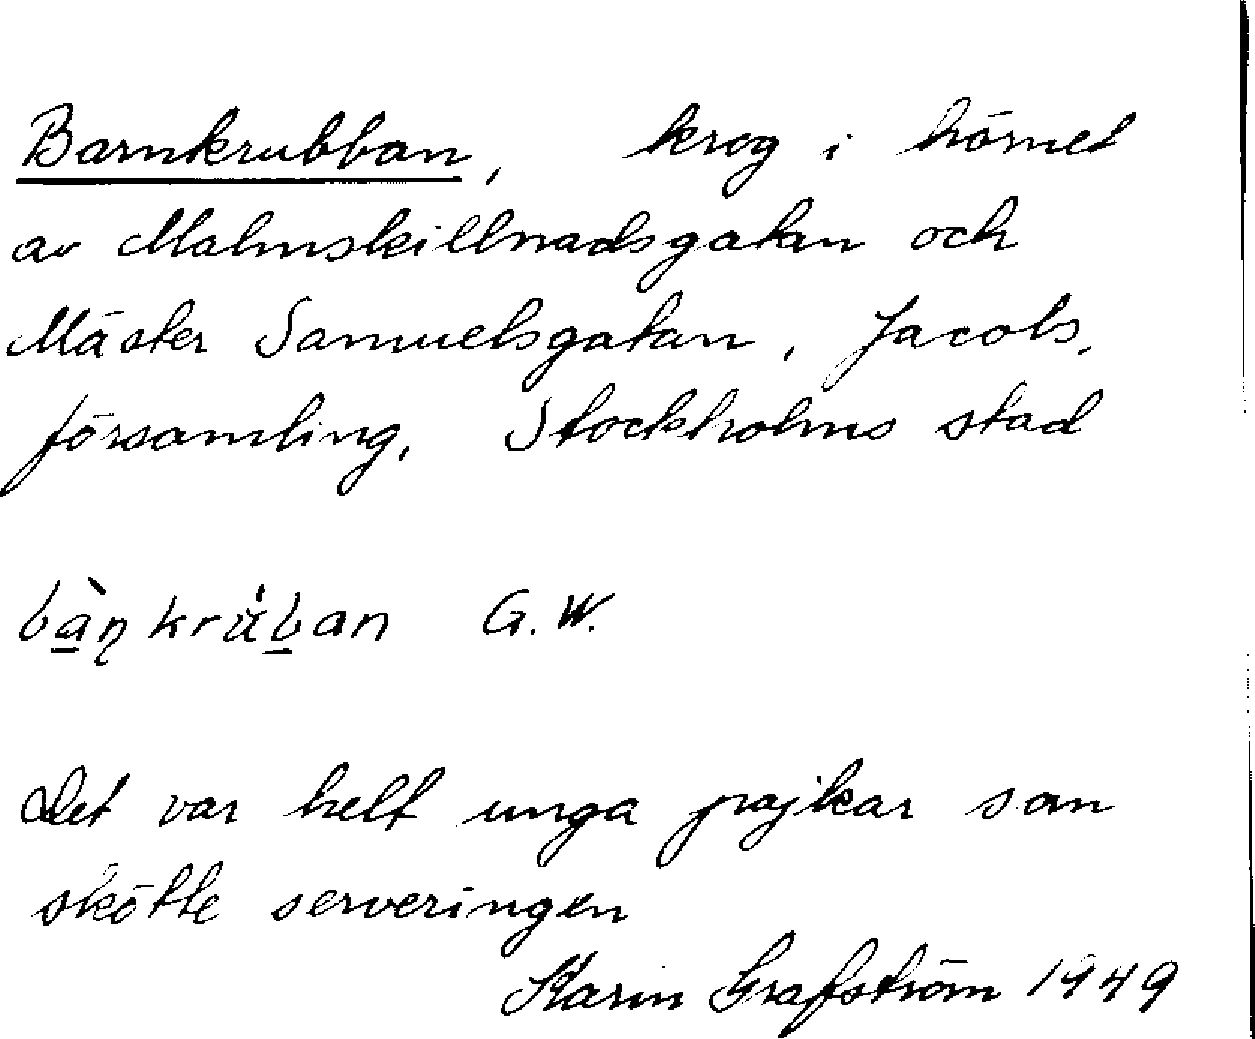 Barnkrubban, krog i hörnet
av Malmskillnadsgatan och
Mäster Samuelsgatan, Jacobs
församling, Stockholms stad
bàṇkrúban G.W.
Det var helt unga pojkar som
skötte serveringen
Karin Grafström 1949